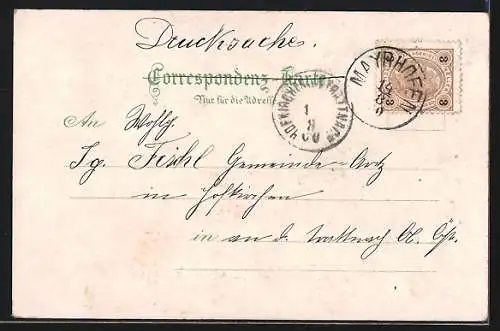 Drucksache.
Correspondenz-Karte
Nur für die Adresse
3 3
MAYRHOFEN
HOFKIRCHEN TRATTNACH
1
8
00
An Wohlg.
Ig. Fischl Gemeinde-Arzt
in Hofkirchen
in an d. Trattnach Ob. Öst.